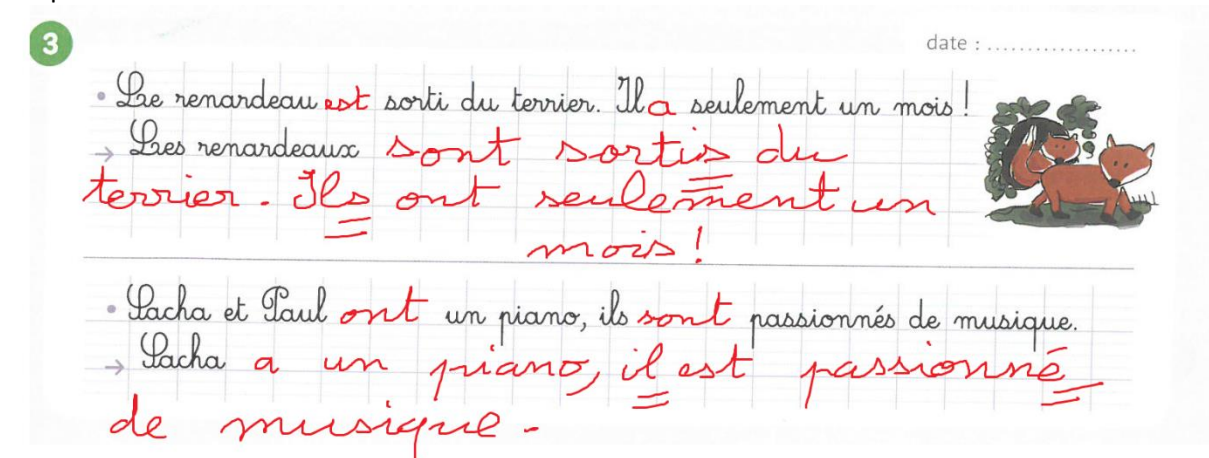 3
date : ...................
• Le renardeau est sorti du terrier. Il a seulement un mois !
→ Les renardeaux sont sortis du
terrier. Ils ont seulement un
mois !
• Sacha et Paul ont un piano, ils sont passionnés de musique.
→ Sacha a un piano, il est passionné
de musique.